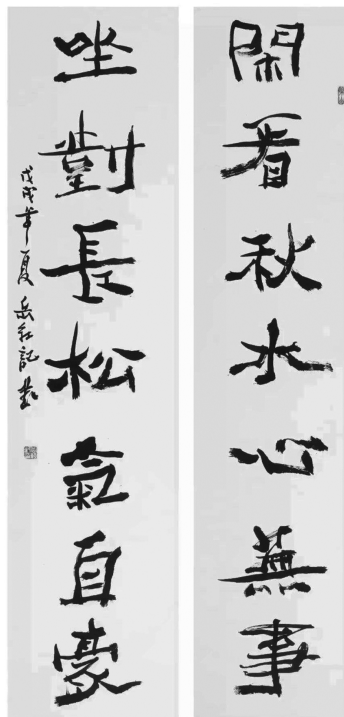 閑看秋水心無事
坐對長松氣自豪
戊戌年夏岳红記